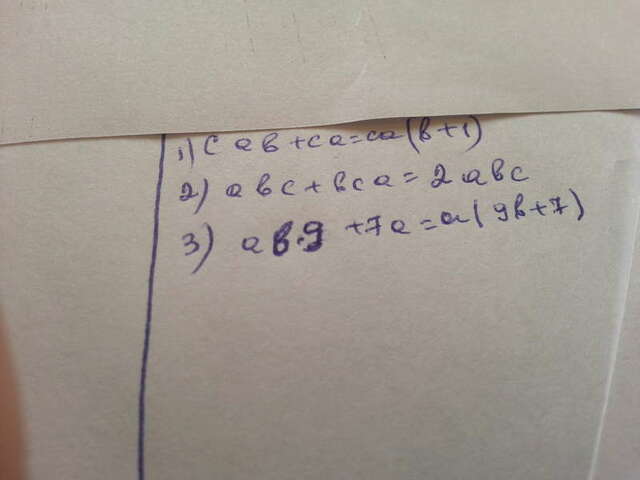 1) cab+ca=ca(b+1)
2) abc+bca=2abc
3) ab·9 +7a=a(9b+7)